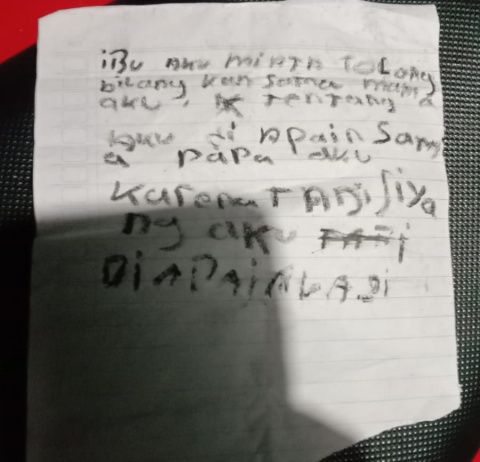 iBu AKU MiNTA TOLONg
bilang kan sama mama
aku. TenTang
aku di APAin Sama
a PAPA aku
Karena TADi Siya
ng aku TADi
DiAPAiN LAgi